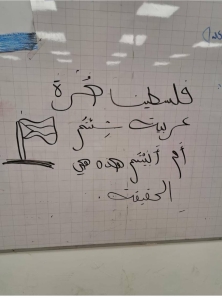 فلسطين حُرة
عربية شِئتُم
أم أَبَيتُم هذه هي
الحقيقة.